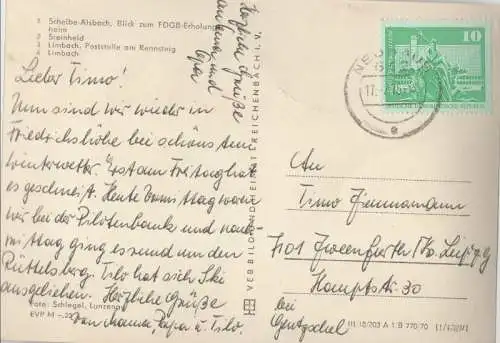 1 Scheibe-Alsbach, Blick zum FDGB-Erholungs-
heim
2 Steinheid
3 Limbach, Poststelle am Rennsteig
4 Limbach
Lieber Timo!
Nun sind wir wieder in
Friedrichshöhe bei schönstem
Winterwetter. Erst am Freitag hat
es geschneit. Heute Vormittag waren
wir bei der Pilotenbank und nach-
mittag ging es rund um den
Rüttelsberg. Tilo hat sich Ski
ausgeliehen. Herzliche Grüße
von Mama, Papa u. Tilo.
Foto: Schlegel, Lunzenau
EVP M –.20
Herzliche Grüße
Oma und
Opa
VEB BILD UND HEIMAT REICHENBACH I. V.
10
NEUHAUS
17.
An
Timo Zimmermann
7101 Zweenfurth Kr. Leipzig
Hauptstr. 30
bei
Gentzschel
III/18/203 A 1 B 770 70